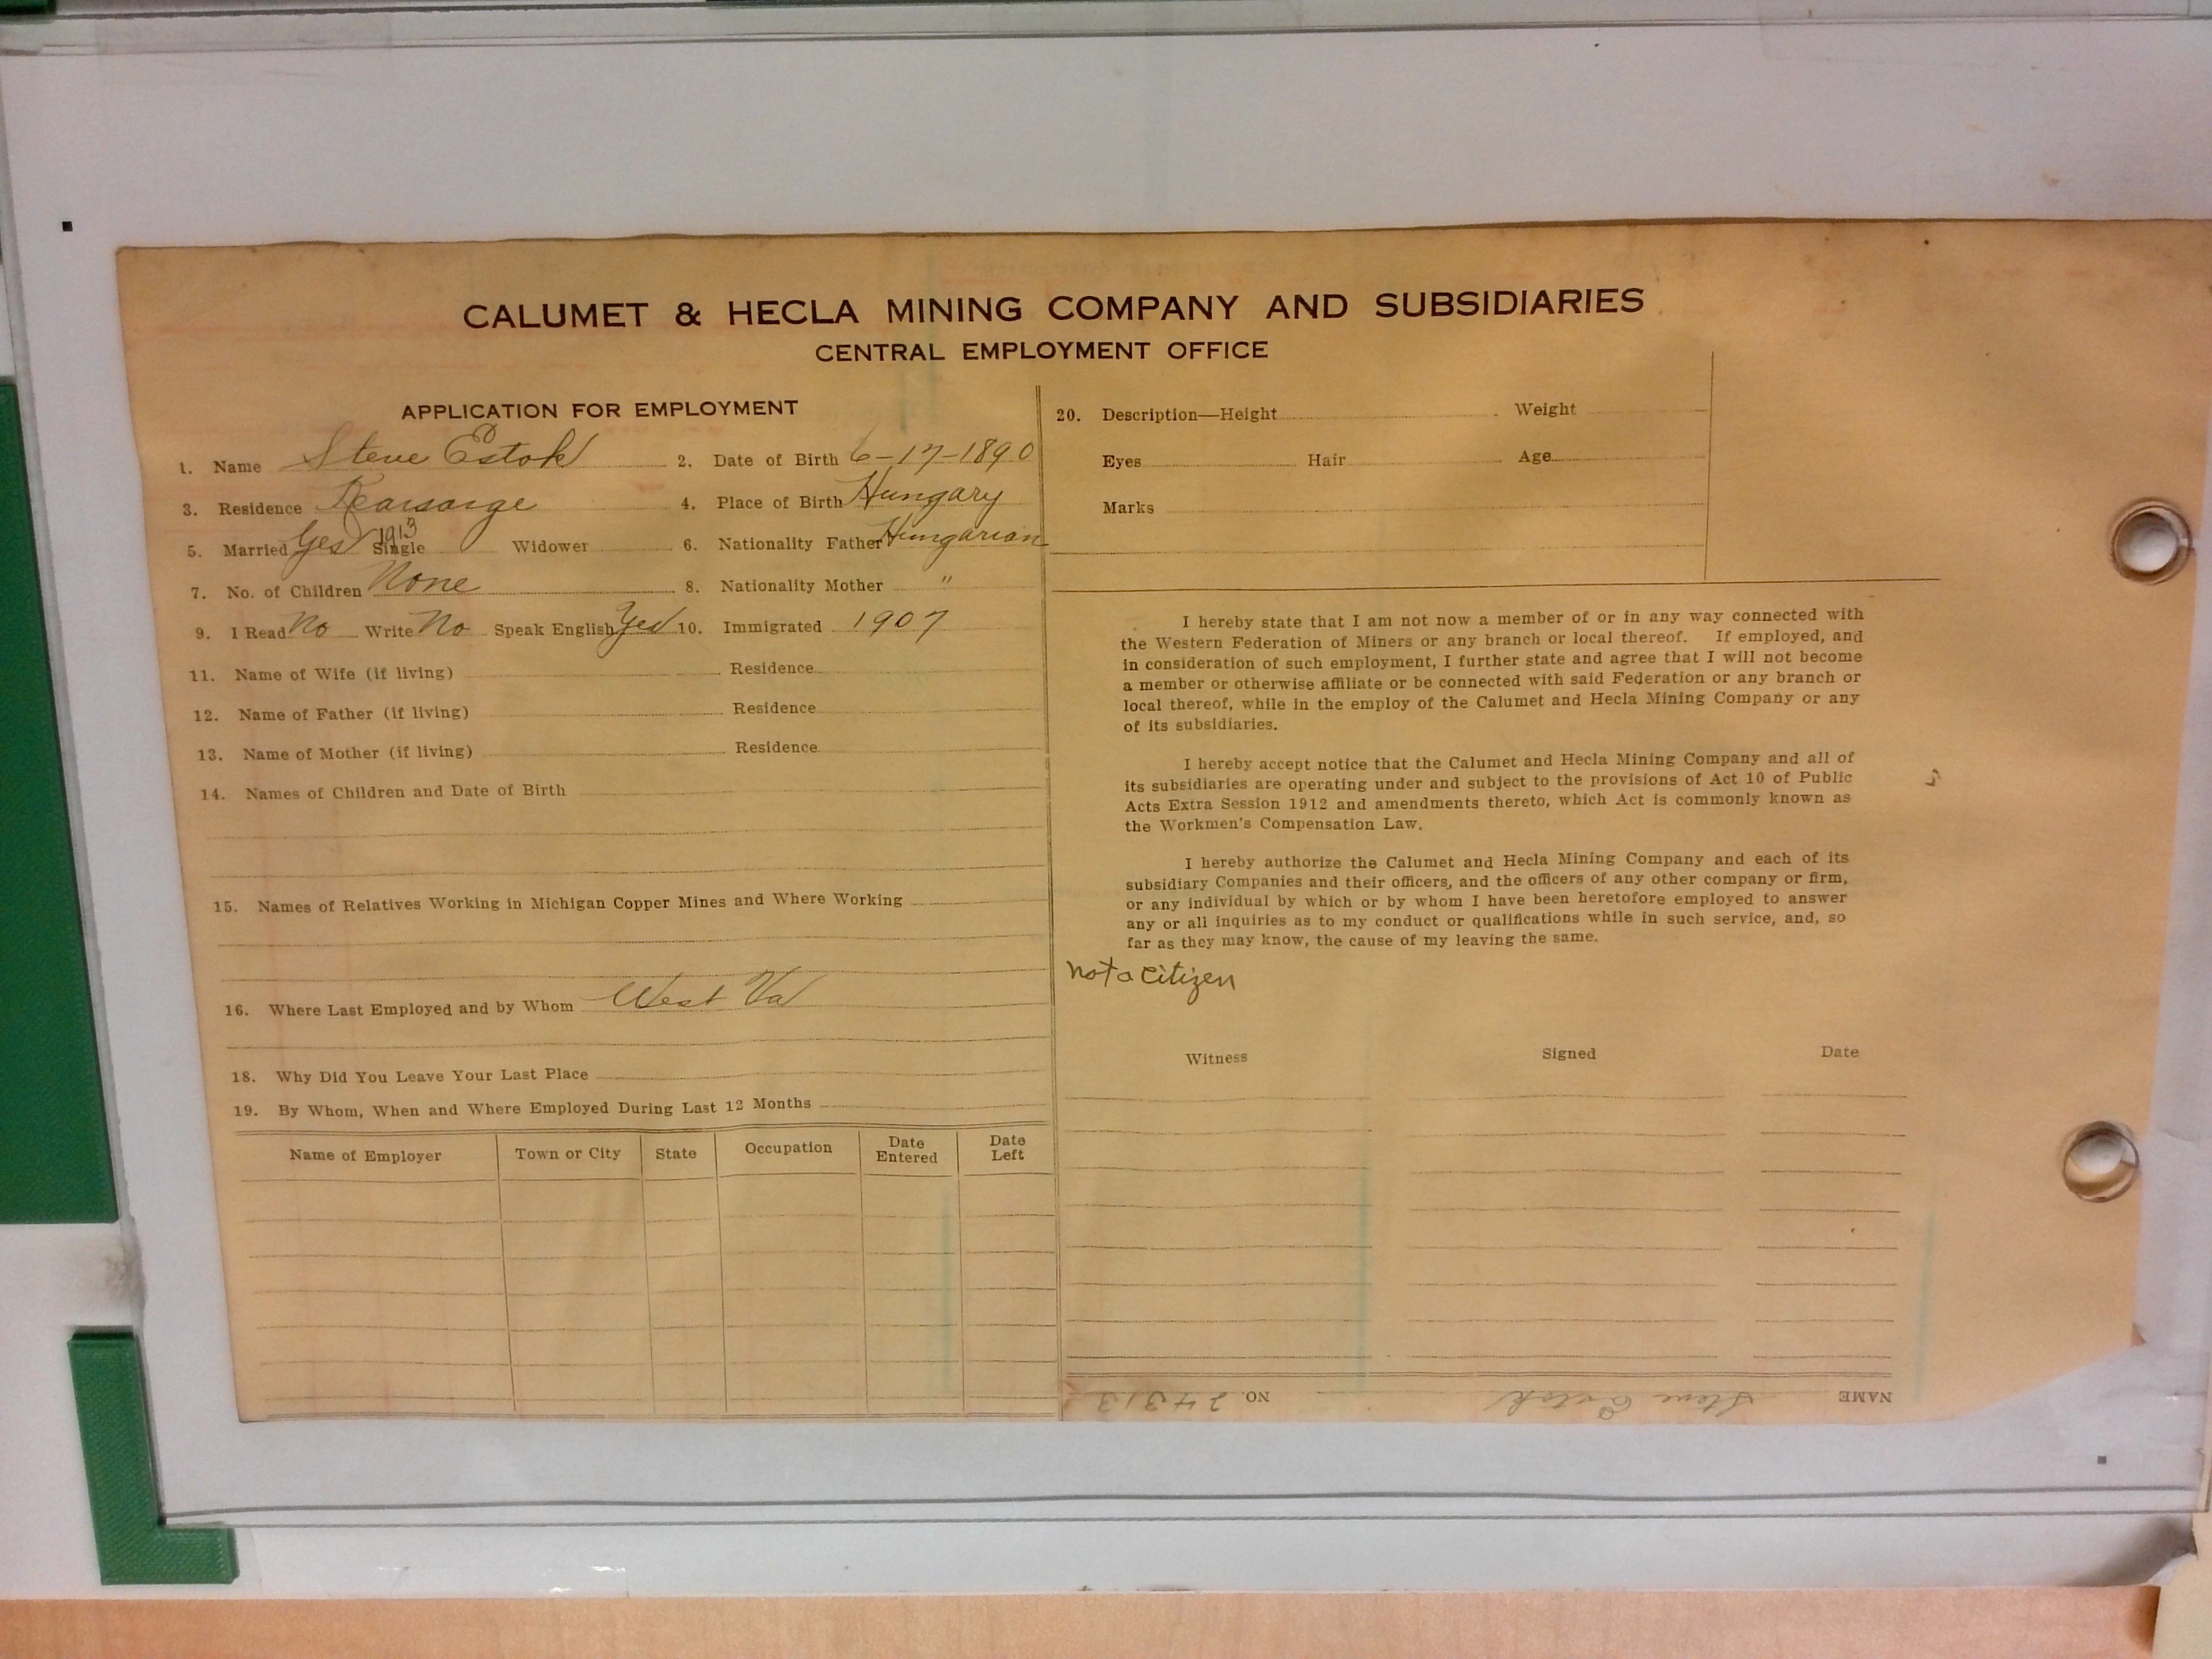 CALUMET & HECLA MINING COMPANY AND SUBSIDIARIES
CENTRAL EMPLOYMENT OFFICE
APPLICATION FOR EMPLOYMENT
1. Name Steve Estok 2. Date of Birth 6-17-1890
3. Residence Kearsarge 4. Place of Birth Hungary
5. Married Yes 1913 Single Widower 6. Nationality Father Hungarian
7. No. of Children None 8. Nationality Mother "
9. I Read No Write No Speak English Yes 10. Immigrated 1907
11. Name of Wife (if living) Residence
12. Name of Father (if living) Residence
13. Name of Mother (if living) Residence
14. Names of Children and Date of Birth
15. Names of Relatives Working in Michigan Copper Mines and Where Working
16. Where Last Employed and by Whom West Va
18. Why Did You Leave Your Last Place
19. By Whom, When and Where Employed During Last 12 Months
Name of Employer Town or City State Occupation Date Entered Date Left
20. Description—Height Weight
Eyes Hair Age
Marks
I hereby state that I am not now a member of or in any way connected with
the Western Federation of Miners or any branch or local thereof. If employed, and
in consideration of such employment, I further state and agree that I will not become
a member or otherwise affiliate or be connected with said Federation or any branch or
local thereof, while in the employ of the Calumet and Hecla Mining Company or any
of its subsidiaries.
I hereby accept notice that the Calumet and Hecla Mining Company and all of
its subsidiaries are operating under and subject to the provisions of Act 10 of Public
Acts Extra Session 1912 and amendments thereto, which Act is commonly known as
the Workmen's Compensation Law.
I hereby authorize the Calumet and Hecla Mining Company and each of its
subsidiary Companies and their officers, and the officers of any other company or firm,
or any individual by which or by whom I have been heretofore employed to answer
any or all inquiries as to my conduct or qualifications while in such service, and, so
far as they may know, the cause of my leaving the same.
Not a Citizen
Witness Signed Date
NAME Steve Estok NO. 24313